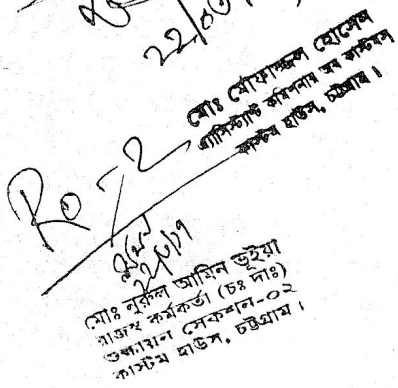 22/0
মোঃ মোফাজ্জল হোসেন
এ্যাসিস্ট্যান্ট কমিশনার অব কাস্টমস
কাস্টম হাউস, চট্টগ্রাম।
Ro - 2
মোঃ নুরুল আমিন ভূইয়া
রাজস্ব কর্মকর্তা (চঃ দাঃ)
শুল্কায়ন সেকশন-০২
কাস্টম হাউস, চট্টগ্রাম।